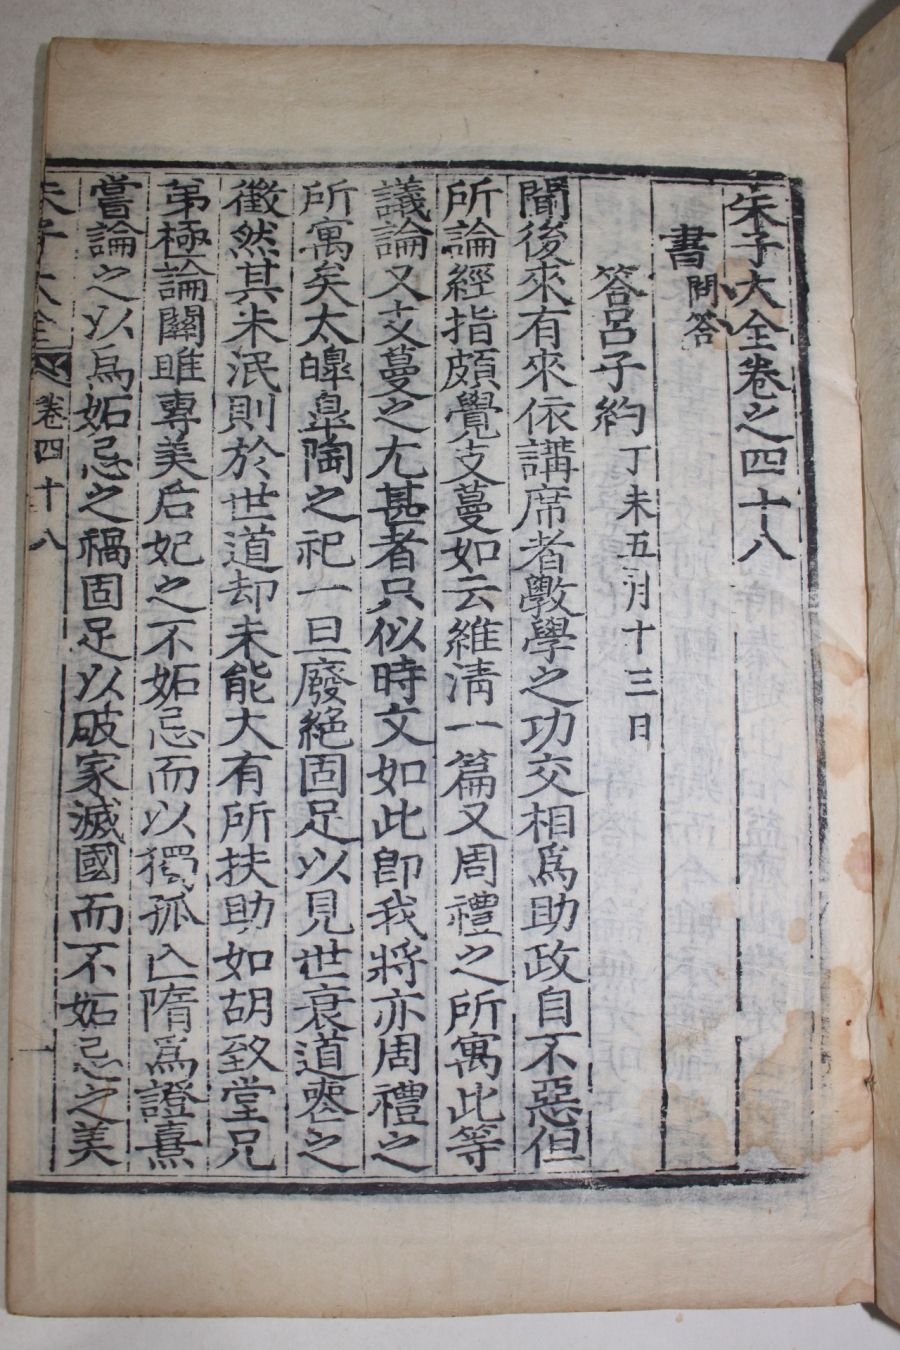 朱子大全卷之四十八
書問答
答呂子約丁未五月十三日
聞後來有來依講席者斆學之功交相爲助政自不惡但
所論經指頗覺支蔓如云維淸一篇又周禮之所寓此等
議論又支蔓之尤甚者只似時文如此卽我將亦周禮之
所寓矣太皥臯陶之祀一旦廢絶固足以見世衰道喪之
徵然其未泯則於世道却未能大有所扶助如胡致堂兄
弟極論關雎專美后妃之不妬忌而以獨孤亡隋爲證熹
嘗論之以爲妬忌之禍固足以破家滅國而不妬忌之美
朱子大全 卷四十八